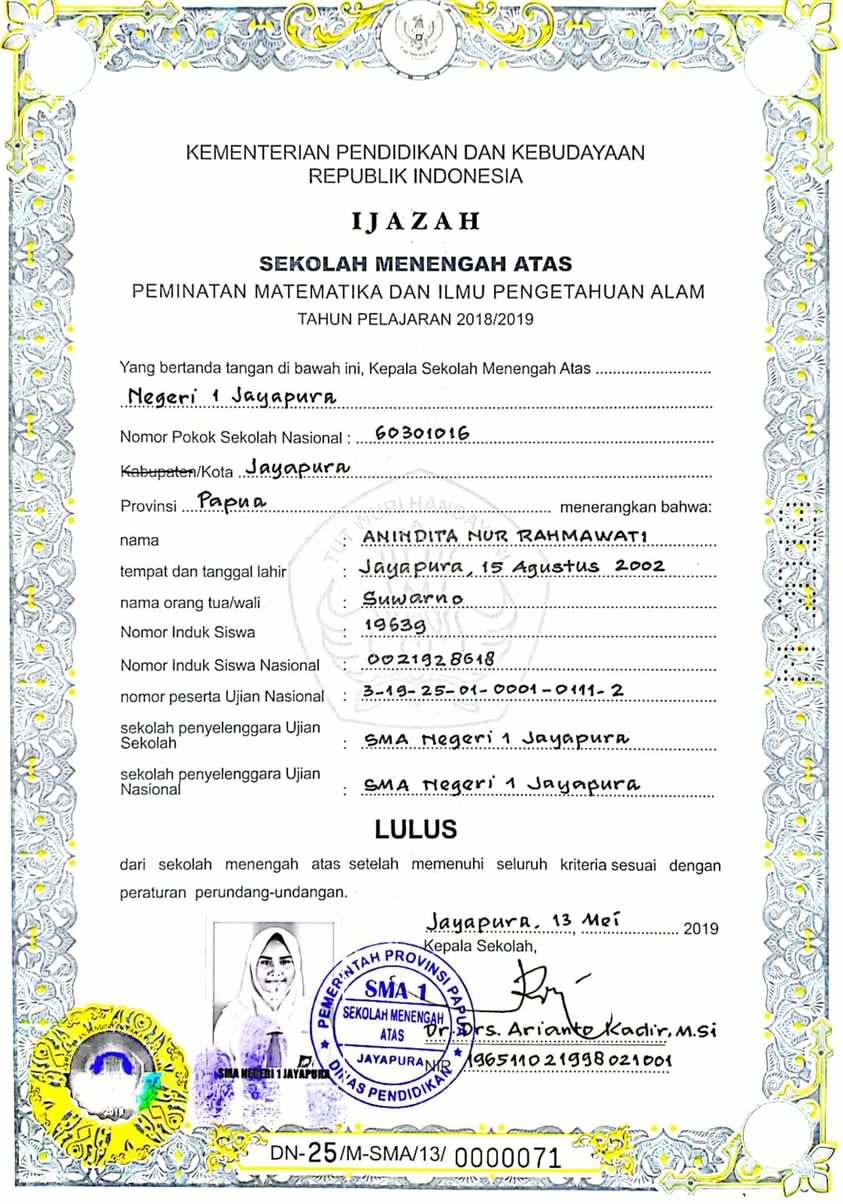 KEMENTERIAN PENDIDIKAN DAN KEBUDAYAAN
REPUBLIK INDONESIA
IJAZAH
SEKOLAH MENENGAH ATAS
PEMINATAN MATEMATIKA DAN ILMU PENGETAHUAN ALAM
TAHUN PELAJARAN 2018/2019
Yang bertanda tangan di bawah ini, Kepala Sekolah Menengah Atas
Negeri 1 Jayapura
Nomor Pokok Sekolah Nasional : 60301016
Kabupaten/Kota Jayapura
Provinsi Papua menerangkan bahwa:
nama : ANINDITA NUR RAHMAWATI
tempat dan tanggal lahir : Jayapura, 15 Agustus 2002
nama orang tua/wali : Suwarno
Nomor Induk Siswa : 19639
Nomor Induk Siswa Nasional : 0021928618
nomor peserta Ujian Nasional : 3-19-25-01-0001-0111-2
sekolah penyelenggara Ujian
Sekolah : SMA Negeri 1 Jayapura
sekolah penyelenggara Ujian
Nasional : SMA Negeri 1 Jayapura
TUT WURI HANDAYANI
LULUS
dari sekolah menengah atas setelah memenuhi seluruh kriteria sesuai dengan
peraturan perundang-undangan.
Jayapura, 13 Mei 2019
Kepala Sekolah,
PEMERINTAH PROVINSI PAPUA
SMA 1
SEKOLAH MENENGAH
ATAS
JAYAPURA
DINAS PENDIDIKAN
Dr. Drs. Arianto Kadir, M.Si
NIP 196511021998021001
SMA NEGERI 1 JAYAPURA
DN-25/M-SMA/13/ 0000071